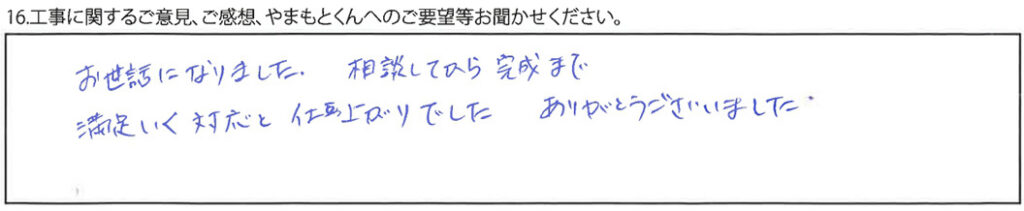 16.工事に関するご意見、ご感想、やまもとくんへのご要望等お聞かせください。
お世話になりました. 相談してから 完成まで
満足いく 対応と 仕上がりでした ありがとうございいました.